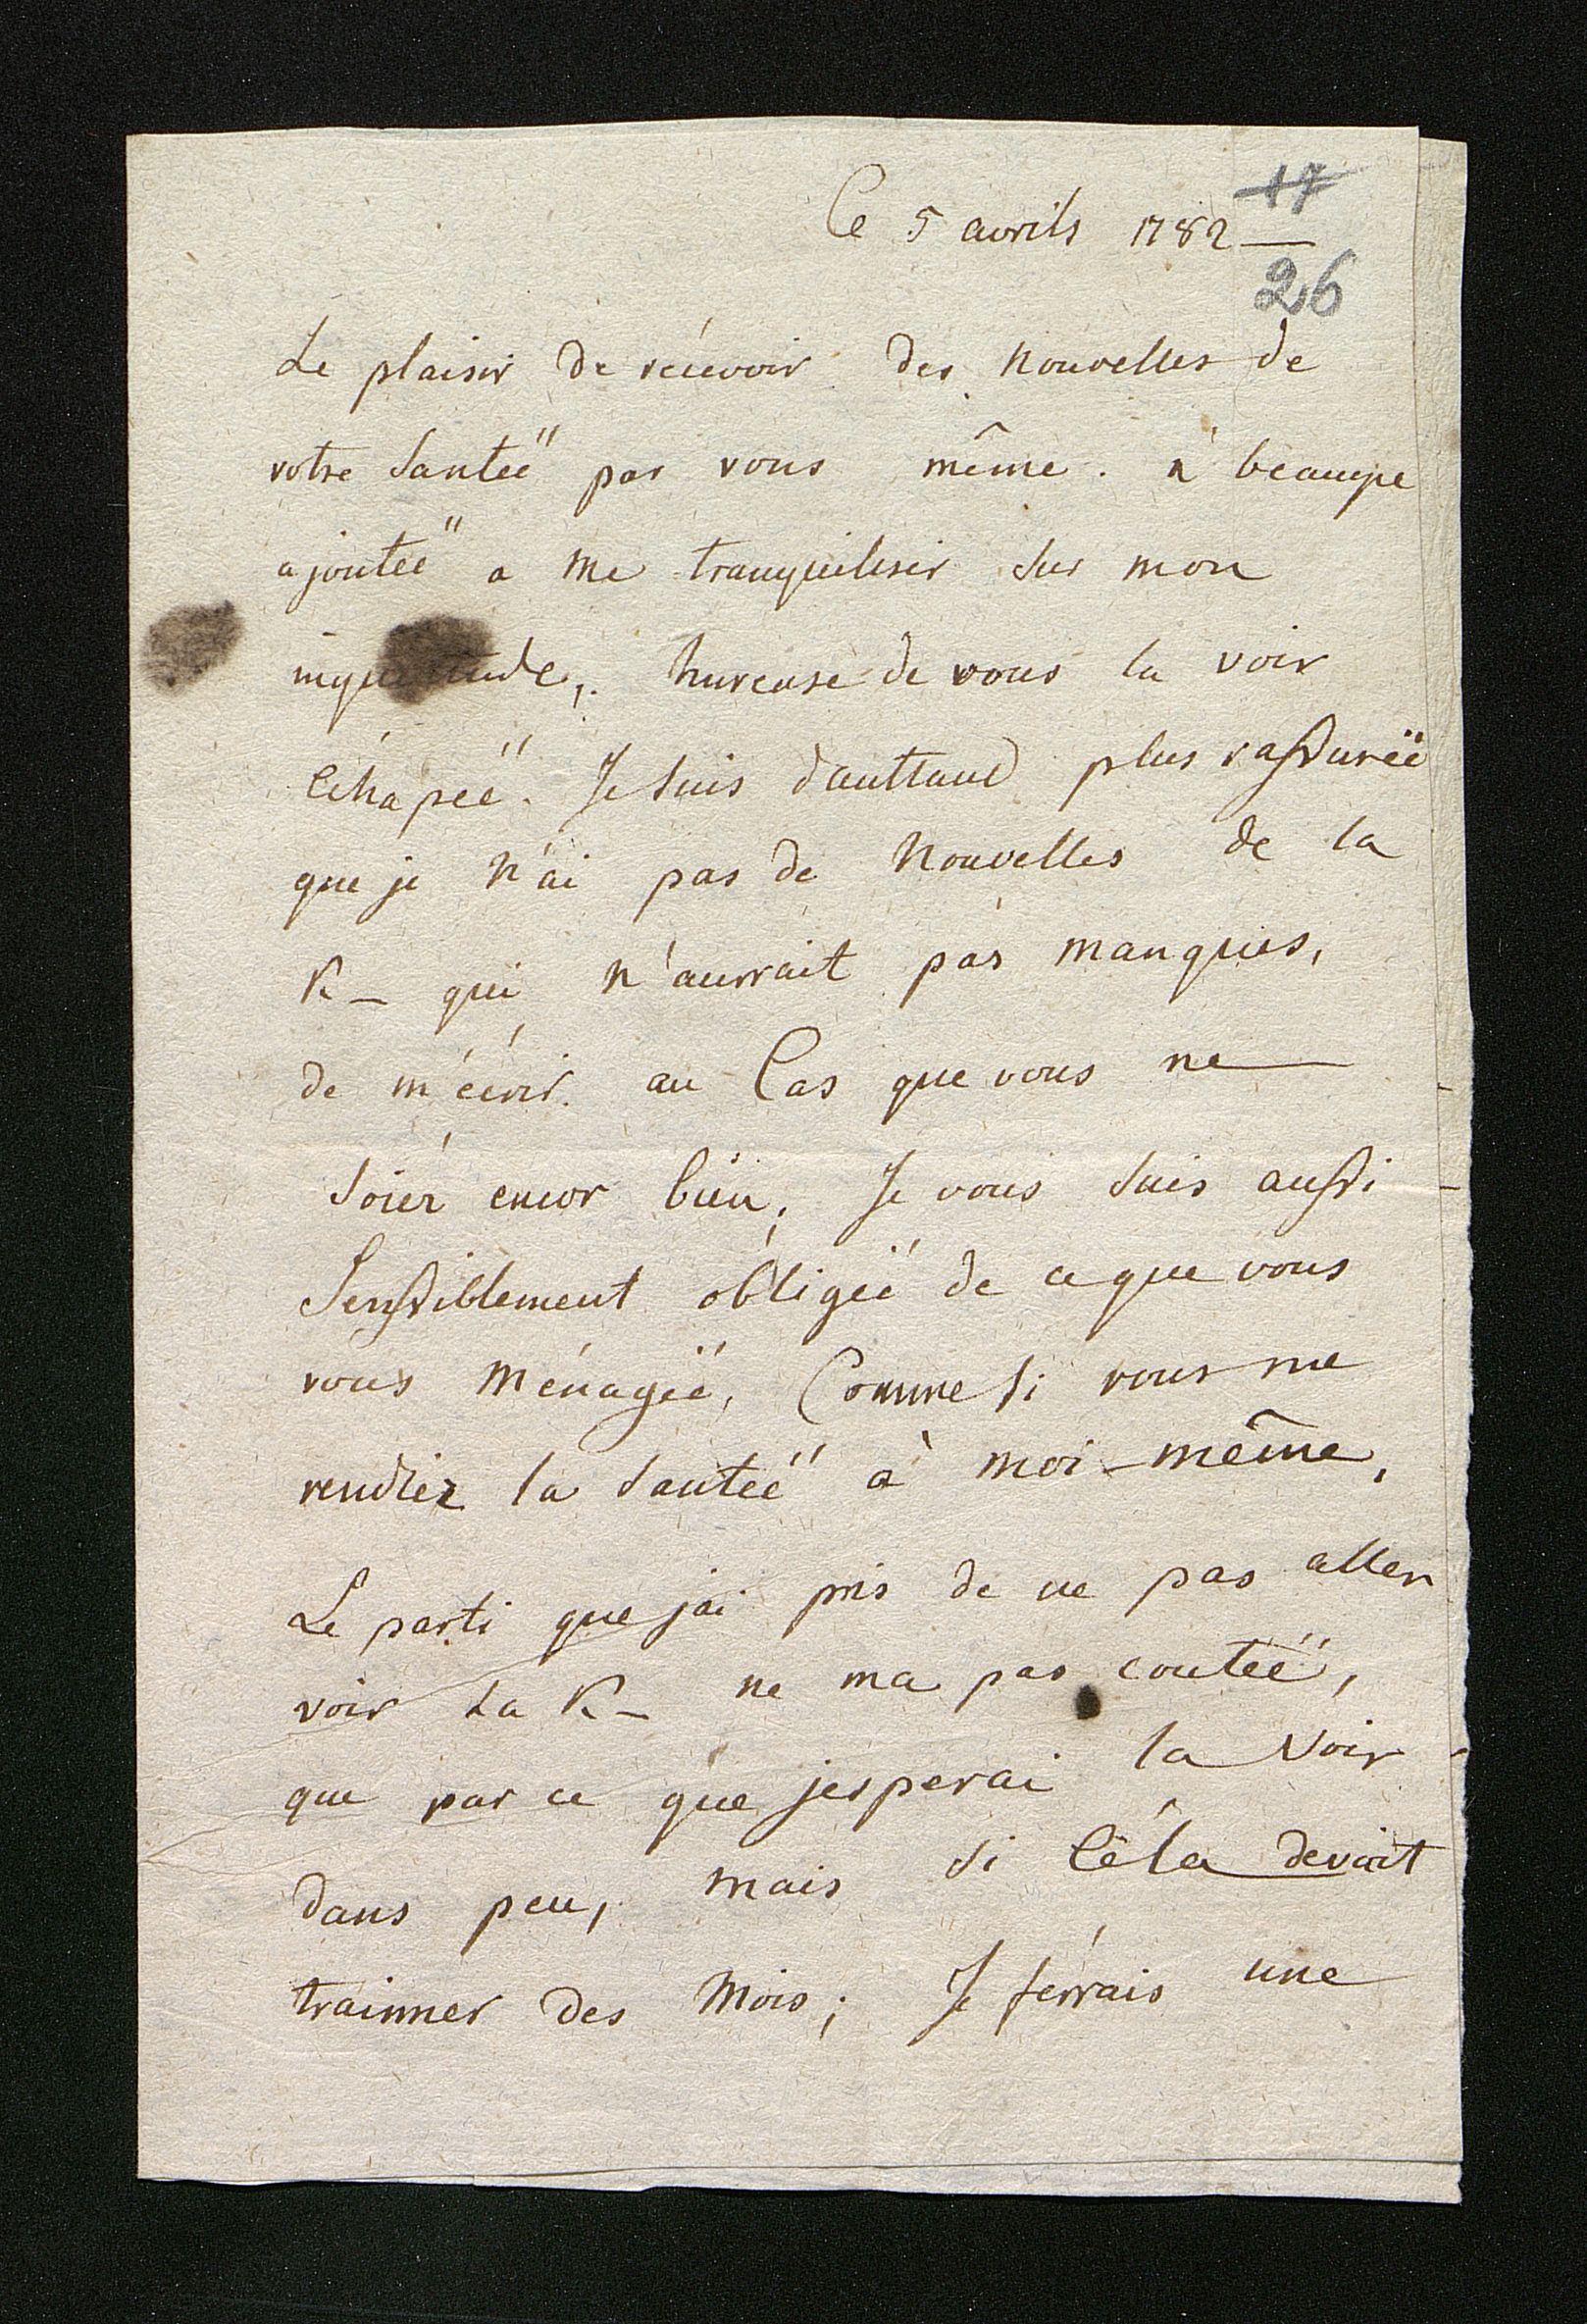 17
Ce 5 avrils 1782 —
26
Le plaisir de recevoir des nouvelles de
votre Santéé par vous même. à beaucpe
ajoutéé a me tranquiliser sur mon
inquietude, hureuse de vous la voir
échapéé. Je suis dauttand plus rassuréé
que je n'ai pas de nouvelles de la
K – qui n'aurrait pas manqués,
de m'écrir. au Cas que vous ne
Soiéz encor bien, Je vous suis aussi
Senssiblement obligéé de ce que vous
vous ménagéé, Comme si vous me
rendiez la santéé à moi-même,
Le parti que jai pris de ne pas aller
voir La K – ne ma pas coutéé,
que par ce que jesperai la voir
dans peu, mais si Céla devait
trainner des mois; Je ferrais une